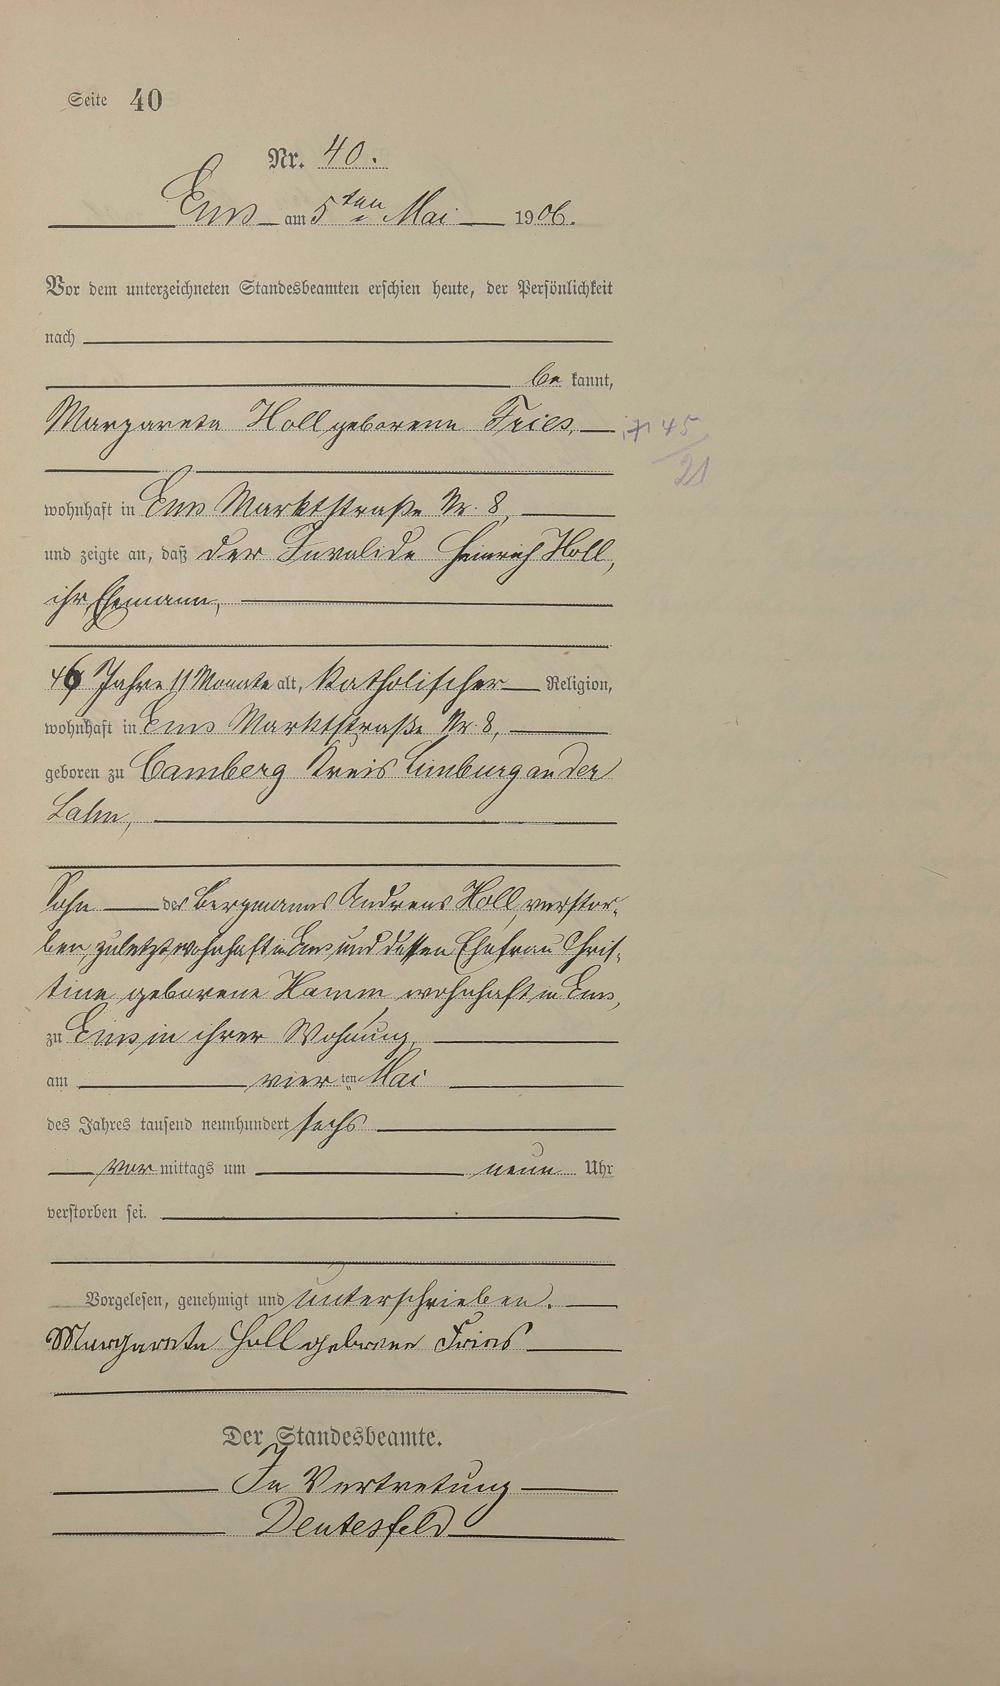 Seite 40
Nr. 40.
Ems am 5ten Mai 1906.
Vor dem unterzeichneten Standesbeamten erschien heute, der Persönlichkeit
nach
be kannt,
Margareta Holl geborene Fries,
45
21
wohnhaft in Ems Marktstraße Nr. 8,
und zeigte an, daß der Invalide Heinrich Holl,
ihr Ehemann,
46 Jahre 11 Monate alt, katholischer Religion,
wohnhaft in Ems Marktstraße Nr. 8,
geboren zu Camberg Kreis Limburg an der
Lahn,
Sohn des Bergmanns Andreas Holl, verstor-
ben, zuletzt wohnhaft in Ems und dessen Ehefrau Chris-
tine geborene Hamm wohnhaft in Ems,
zu Ems in ihrer Wohnung,
am vier ten Mai
des Jahres tausend neunhundert sechs
vor mittags um neun Uhr
verstorben sei.
Vorgelesen, genehmigt und unterschrieben.
Margareta Holl geborene Fries
Der Standesbeamte.
In Vertretung
Deutesfeld